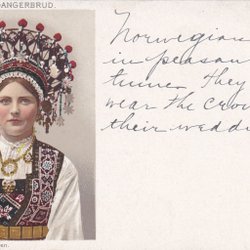 DANGERBRUD.
Norwegian
in peasan
tume. they
wear the crow
their weddi
en.